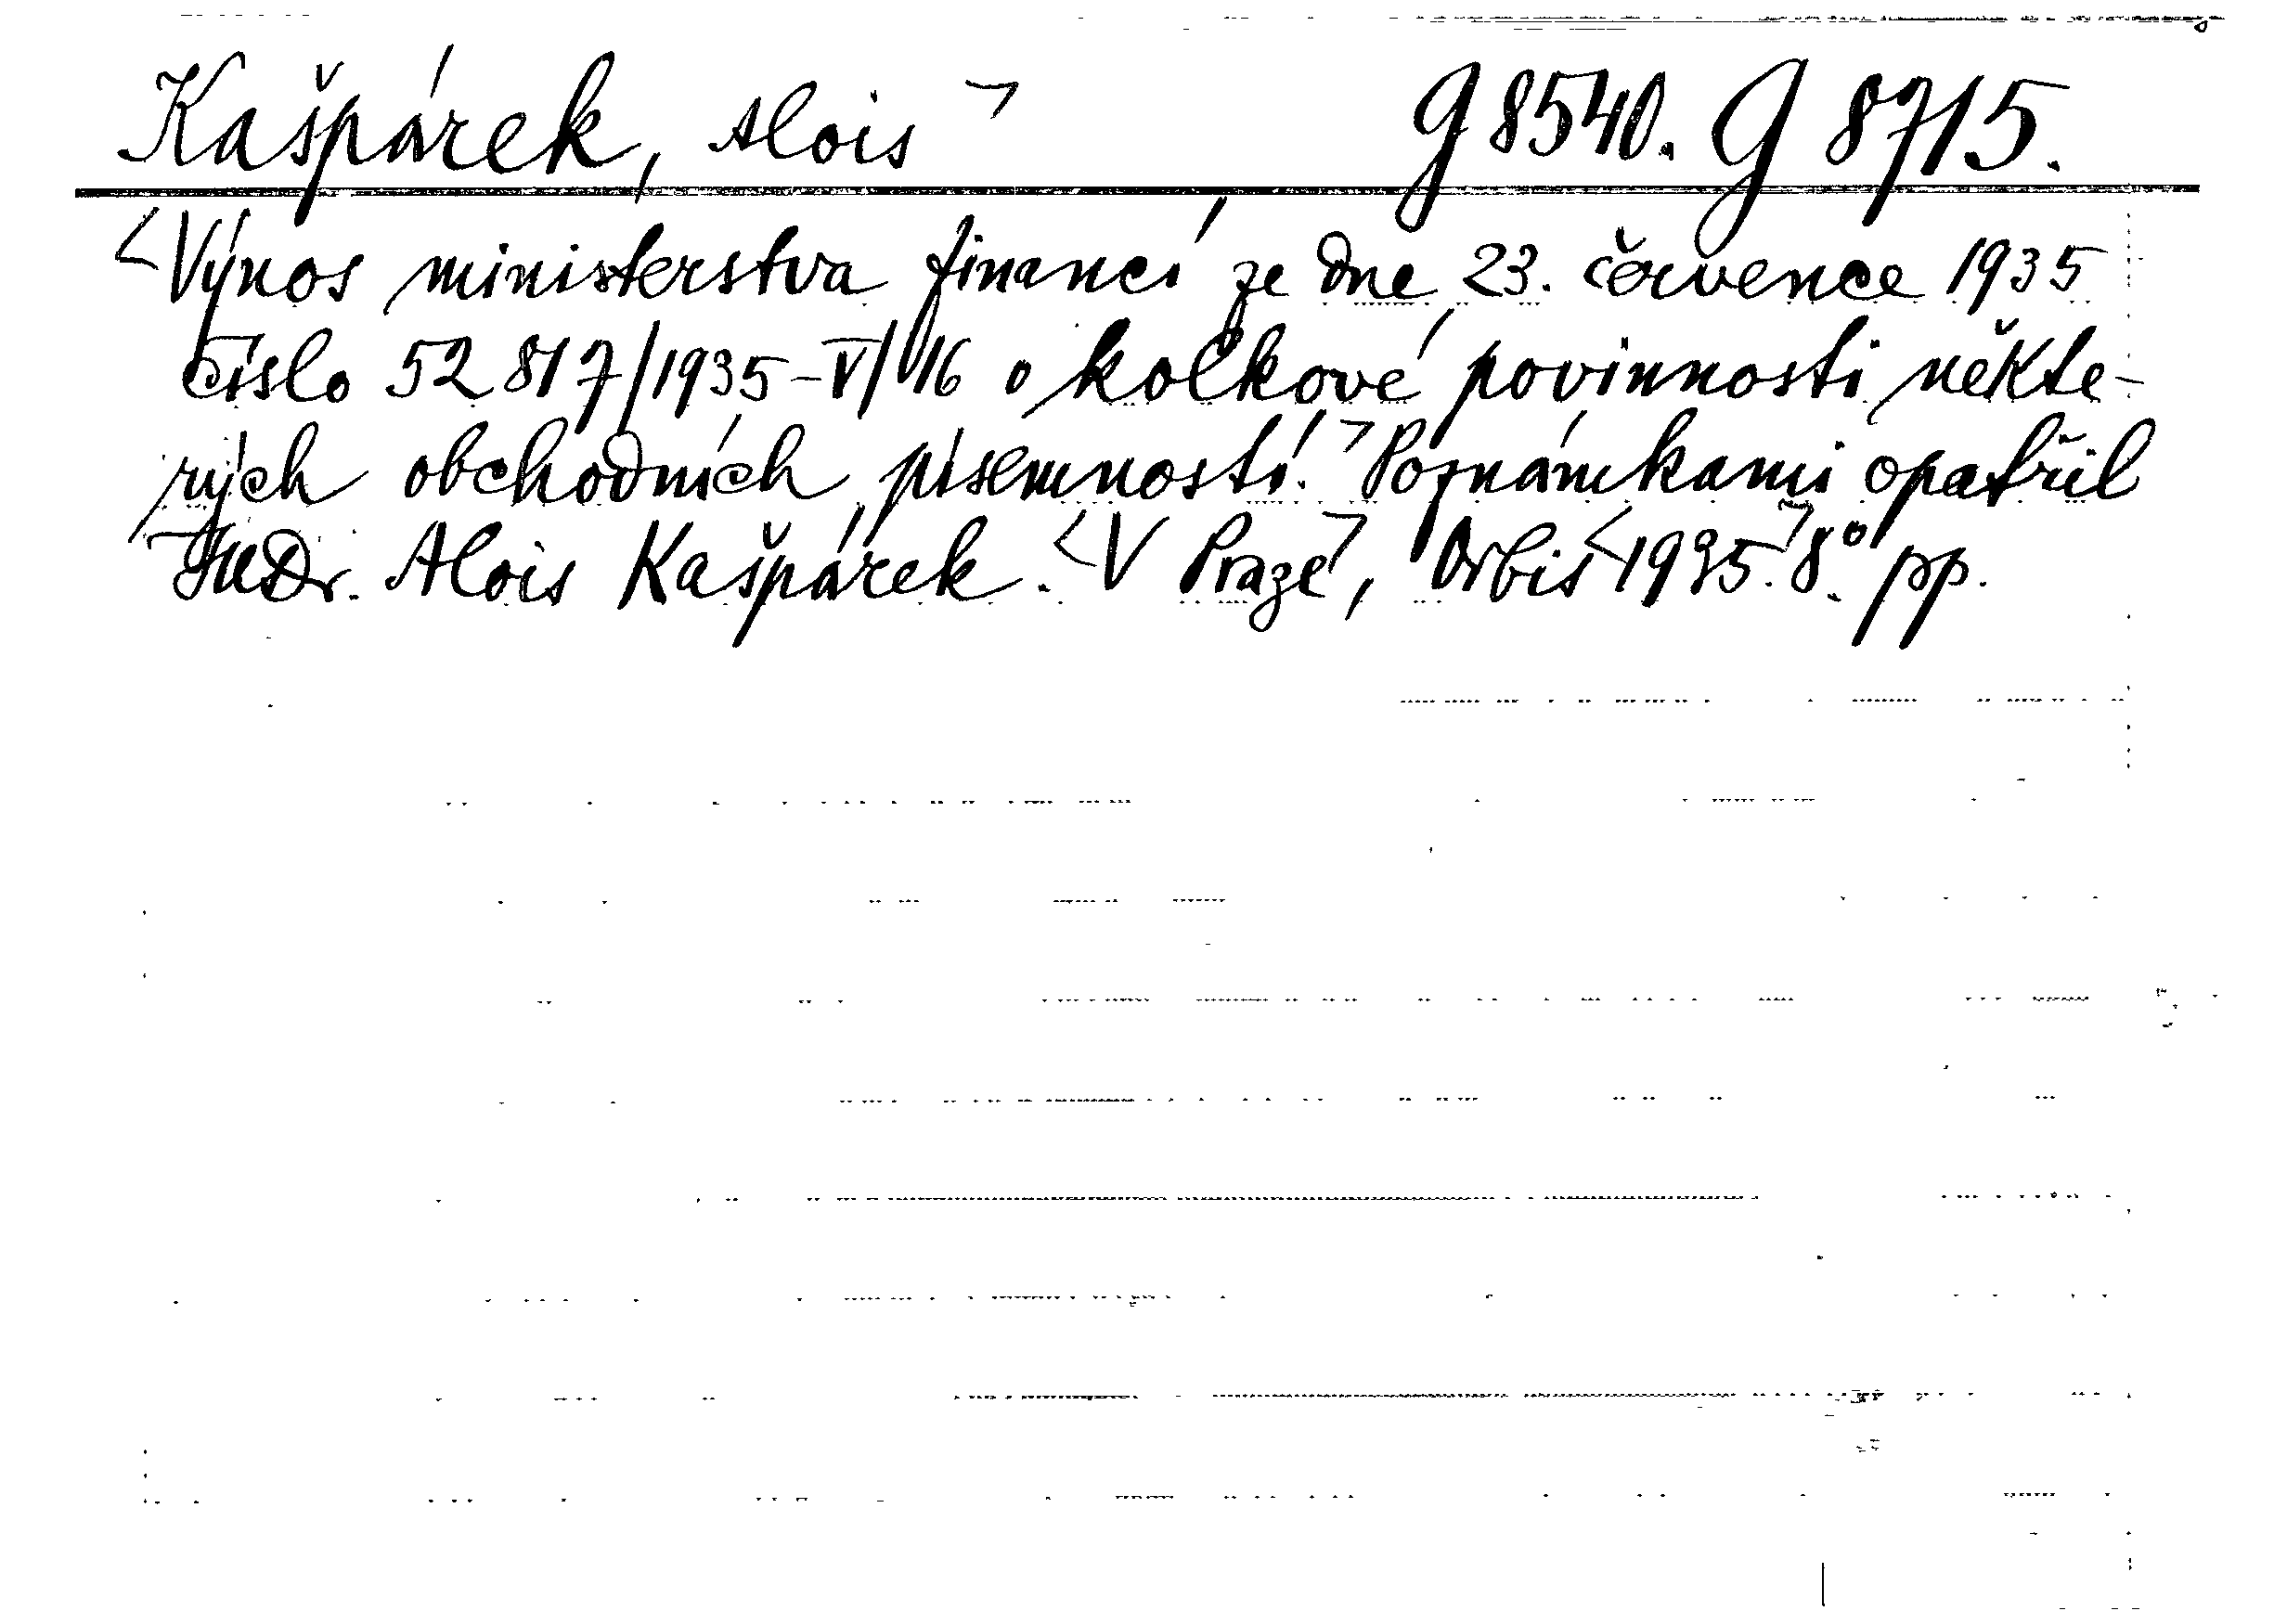 Kašpárek, Alois ¬ G 8540. G 8715.
<Výnos ministerstva financí ze dne 23. července 1935
číslo 52 817/1935-V/16 o kolkové povinnosti někte-
rých obchodních písemností.¬ Poznámkami opatřil
JUDr. Alois Kašpárek. <V Praze¬, Orbis <1935.¬ 8°. pp.